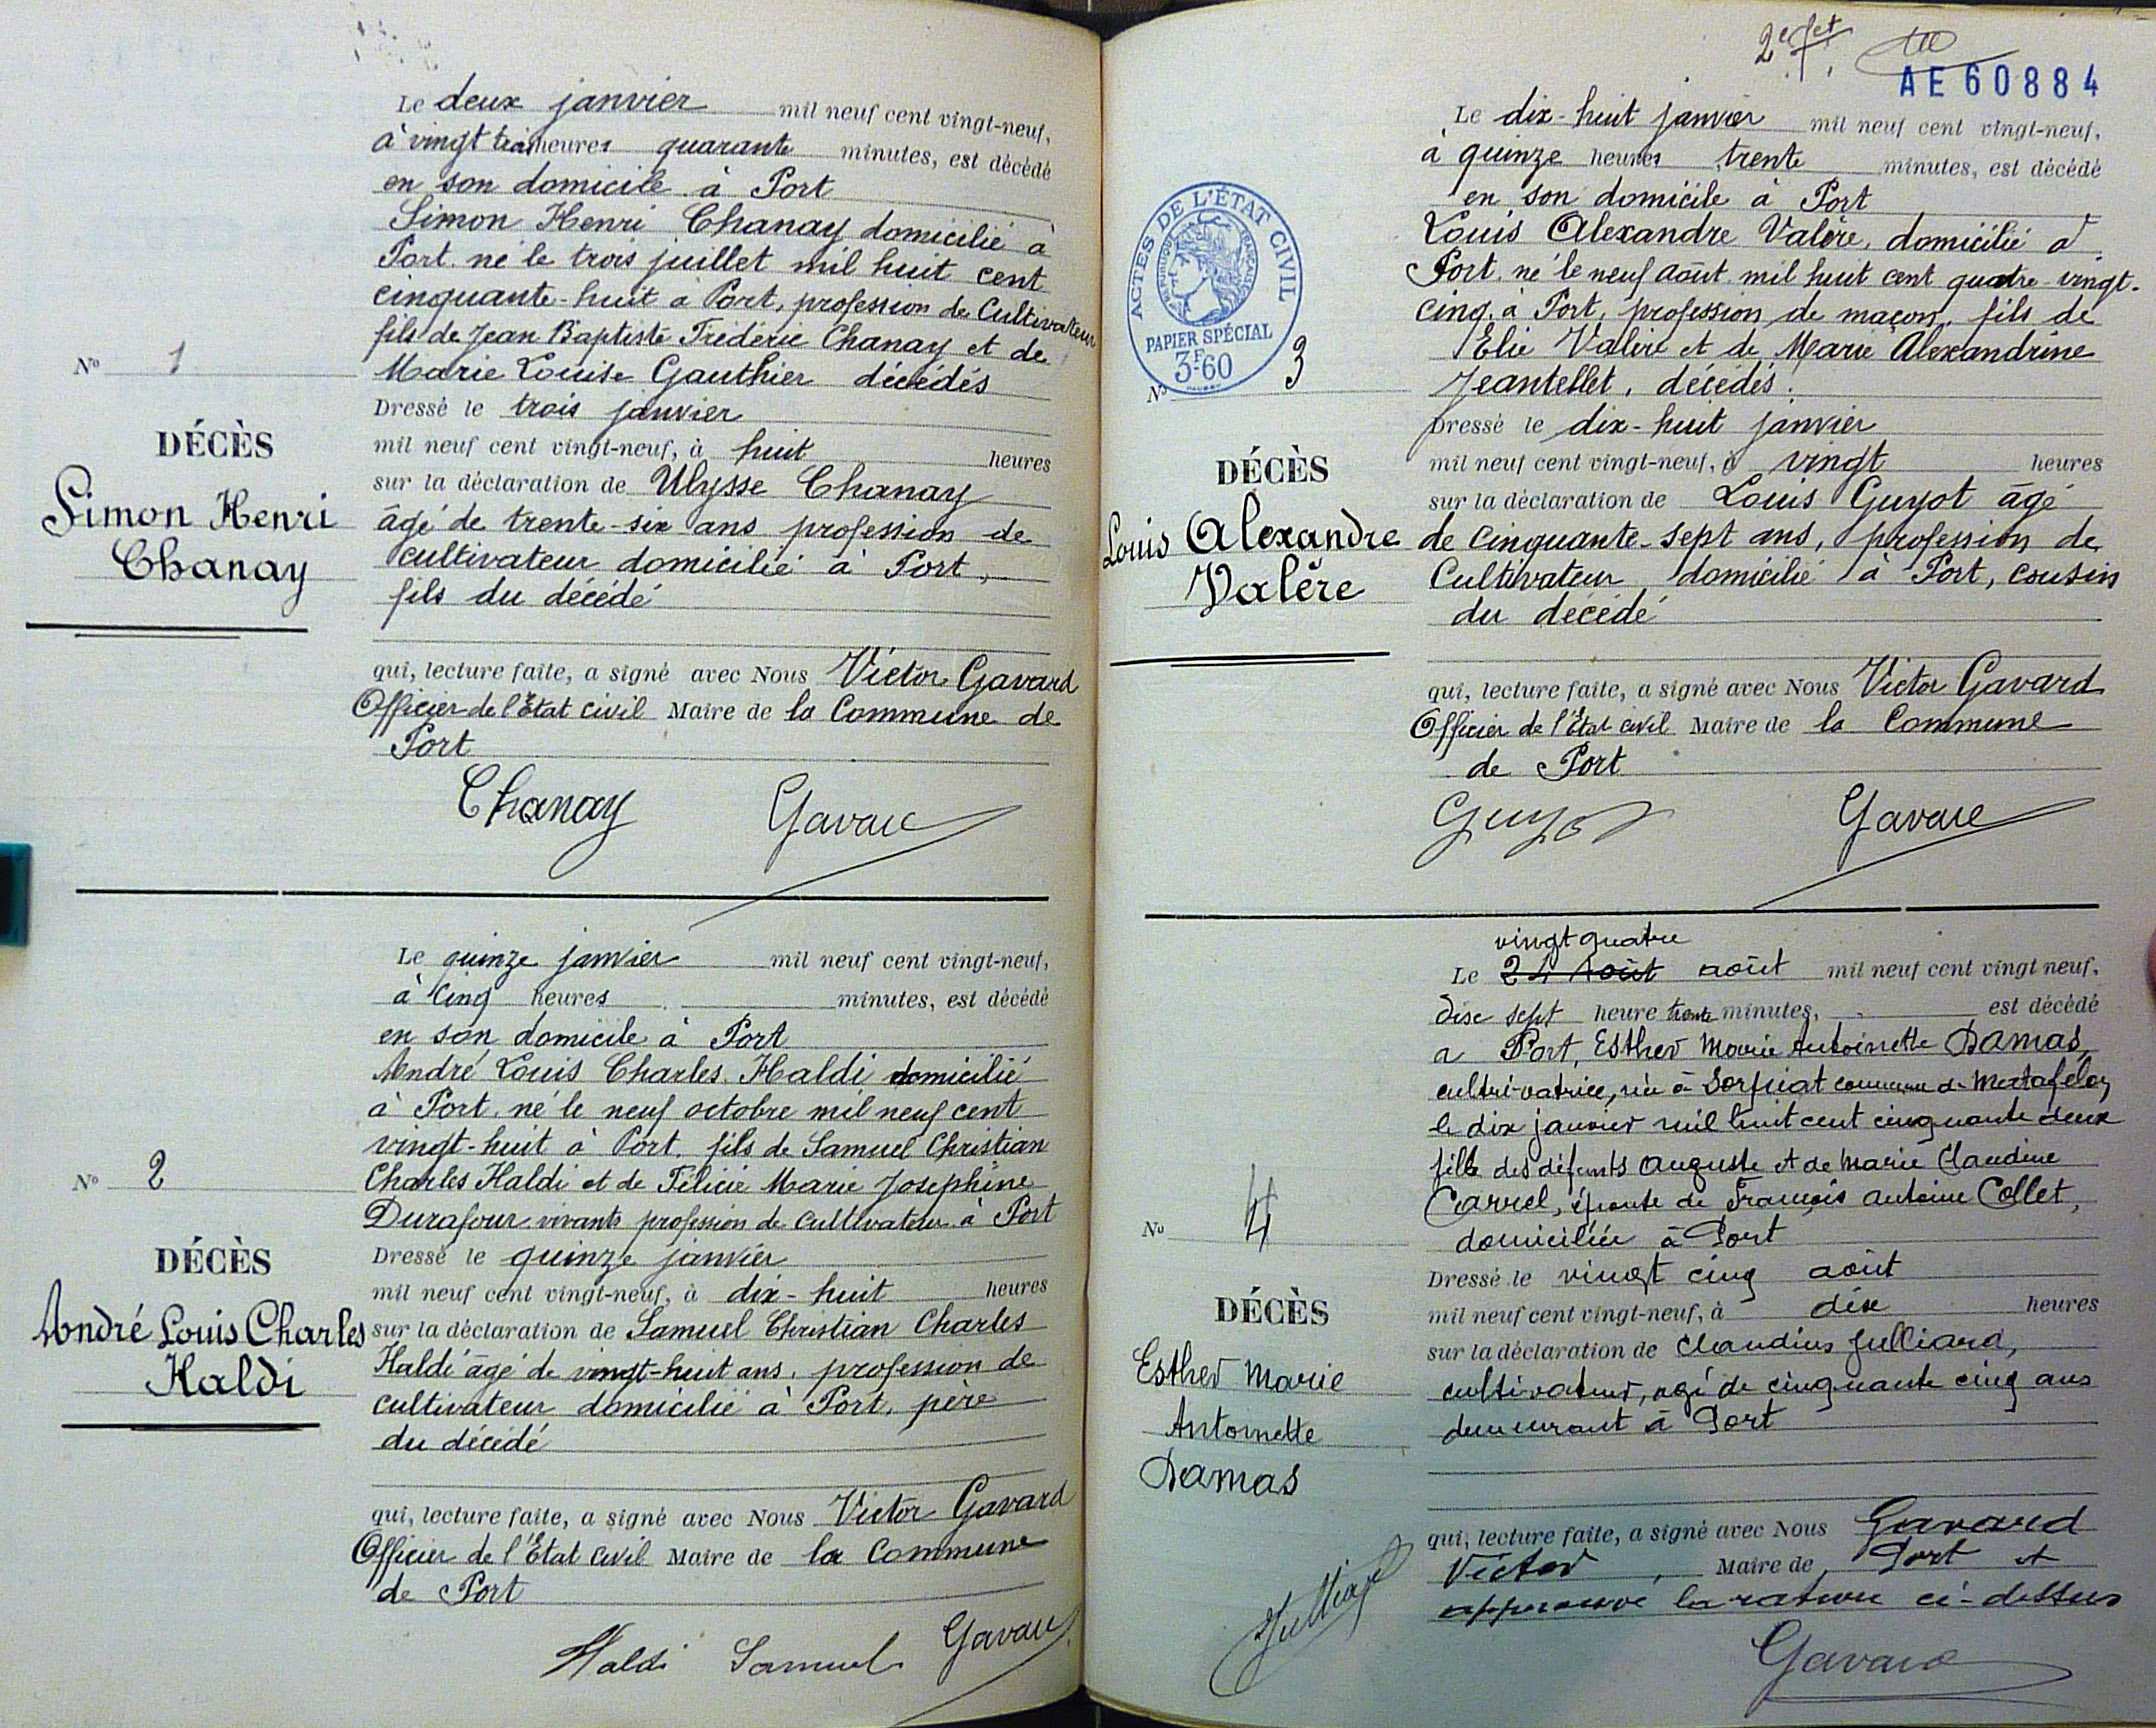 Le deux janvier mil neuf cent vingt-neuf,
à vingt trois heures quarante minutes, est décédé
en son domicile à Port
Simon Henri Chanay domicilié à
Port. né le trois juillet mil huit cent
cinquante-huit à Port, profession de Cultivateur
fils de Jean Baptiste Frédéric Chanay et de
Marie Louise Gauthier décédés
Dressé le trois janvier
mil neuf cent vingt-neuf, à huit heures
sur la déclaration de Ulysse Chanay
âgé de trente-six ans profession de
cultivateur domicilié à Port,
fils du décédé
qui, lecture faite, a signé avec Nous Victor Gavard
Officier de l'Etat civil Maire de la Commune de
Port
Chanay Gavard
N° 1
DÉCÈS
Simon Henri
Chanay
Le quinze janvier mil neuf cent vingt-neuf,
à cinq heures minutes, est décédé
en son domicile à Port
André Louis Charles Haldi domicilié
à Port. né le neuf octobre mil neuf cent
vingt-huit à Port. fils de Samuel Christian
Charles Haldi et de Félicie Marie Joséphine
Durafour vivants profession de cultivateur à Port
Dressé le quinze janvier
mil neuf cent vingt-neuf, à dix-huit heures
sur la déclaration de Samuel Christian Charles
Haldi âgé de vingt-huit ans, profession de
cultivateur domicilié à Port, père
du décédé
qui, lecture faite, a signé avec Nous Victor Gavard
Officier de l'Etat civil Maire de la Commune
de Port
Haldi Samuel Gavard
N° 2
DÉCÈS
André Louis Charles
Haldi
AE60884
Le dix-huit janvier mil neuf cent vingt-neuf,
à quinze heures trente minutes, est décédé
en son domicile à Port
Louis Alexandre Valère, domicilié à
Port. né le neuf août mil huit cent quatre-vingt-
cinq. à Port, profession de maçon, fils de
Elie Valère et de Marie Alexandrine
Jeantellet, décédés.
Dressé le dix-huit janvier
mil neuf cent vingt-neuf, à vingt heures
sur la déclaration de Louis Guyot âgé
de cinquante-sept ans, profession de
Cultivateur domicilié à Port, cousin
du décédé
qui, lecture faite, a signé avec Nous Victor Gavard
Officier de l'Etat civil Maire de la Commune
de Port
Guyot Gavard
ACTES DE L'ÉTAT CIVIL
RÉPUBLIQUE FRANÇAISE
PAPIER SPÉCIAL
3F60
N° 3
DÉCÈS
Louis Alexandre
Valère
vingt quatre
Le 24 Août août mil neuf cent vingt neuf,
dix sept heure trente minutes, est décédé
a Port, Esther Marie Antoinette Damas
cultivatrice, née à Sorpiat commune de Matafelon
le dix janvier mil huit cent cinquante deux
fille des défunts Auguste et de Marie Claudine
Carrel, épouse de François Antoine Collet,
domiciliée à Port
Dressé le vingt cinq août
mil neuf cent vingt-neuf, à dix heures
sur la déclaration de Claudius Julliard,
cultivateur, agé de cinquante cinq ans
demeurant à Port
qui, lecture faite, a signé avec Nous Gavard
Victor, Maire de Port et
approuvé la rature ci-dessus
Julliard Gavard
N° 4
DÉCÈS
Esther Marie
Antoinette
Damas